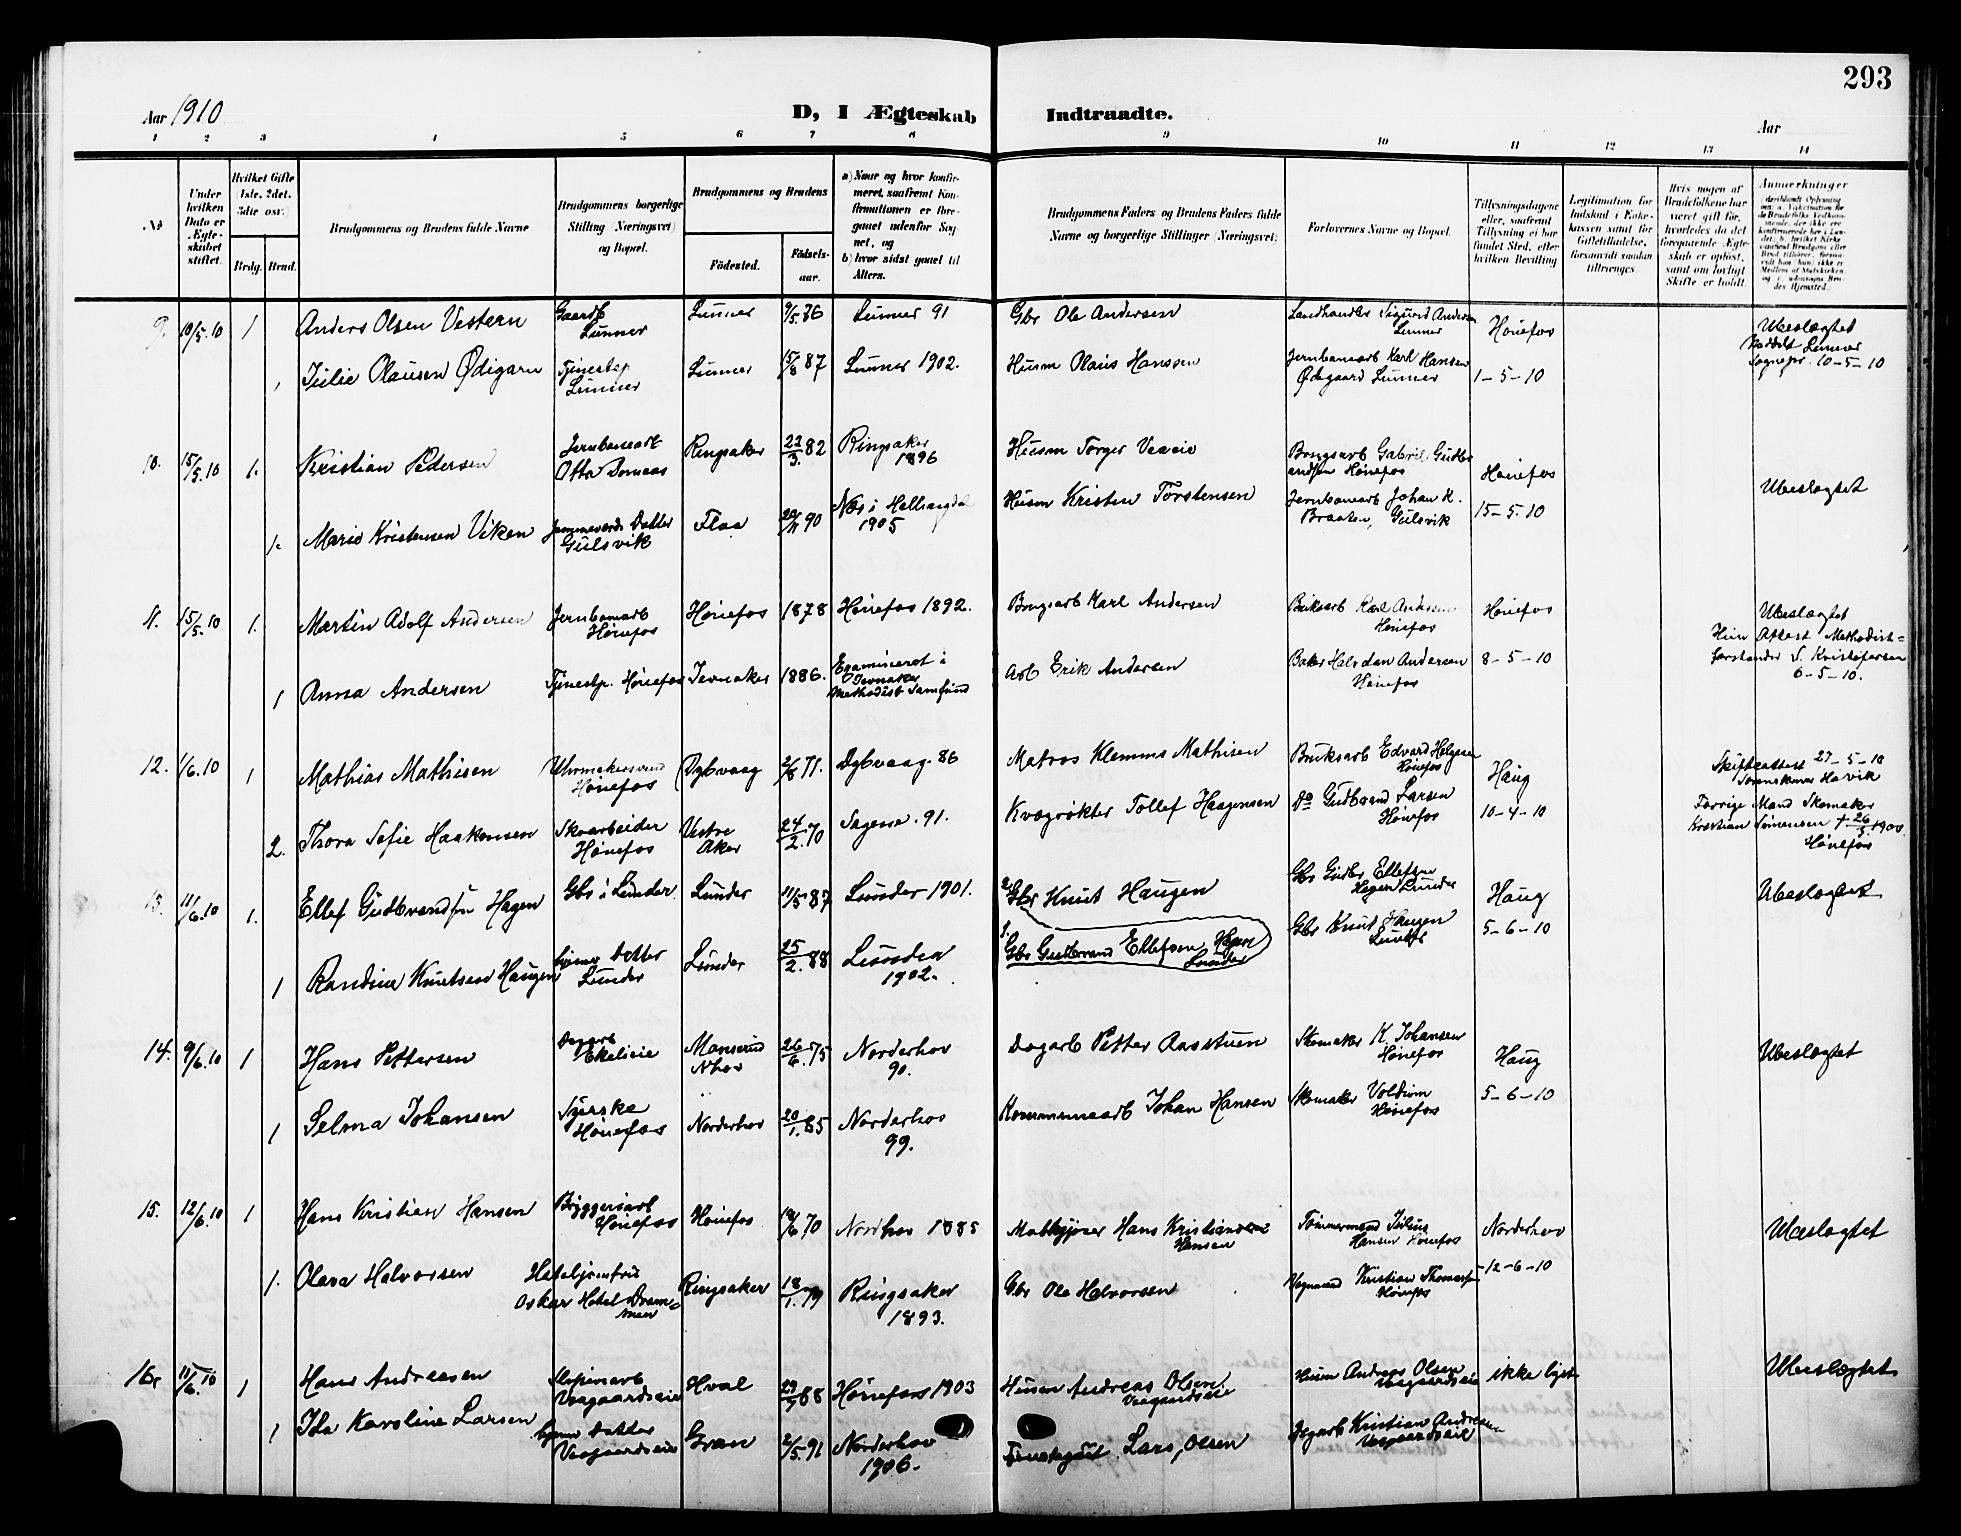 293
Aar 1910
D, I Ægteskab Indtraadte.
Aar
1 2 3 4 5 6 7 8 9 10 11 12 13 14
No
Under hvilken Dato er Ægteskabet stiftet.
Hvilket Gifte 1ste, 2det, 3die osv.)
Brdg. Brud.
Brudgommens og Brudens fulde Navne
Brudgommens borgerlige Stilling (Næringsvei) og Bopæl.
Brudgommens og Brudens
Fødested.
Fødselsaar.
a) Naar og hvor konfirmeret, saafremt Konfirmationen er foregaaet udenfor Sognet, og
b) hvor sidst gaaet til Alters.
Brudgommens Faders og Brudens Faders fulde Navne og borgerlige Stillinger (Næringsvei)
Forlovernes Navne og Bopæl.
Tillysningsdagene eller, saafremt Tillysning ei har fundet Sted, efter hvilken Bevilling
Legitimation for Indskud i Enkekassen samt for Giftetilladelse, forsaavidt saadan tiltrænges.
Hvis nogen af Brudefolkene har været gift før, hvorledes da det foregaaende Ægteskab er opløst, samt om lovligt Skifte er holdt.
Anmerkninger
9. 10/5.10 1 Anders Olsen Vestern Gaardb Lunner Lunner 9/5 76 Lunner 91 Gbr Ole Andersen Landhandler Sigurd Andersen Lunner Hønefos Ubeslægtet
1 Julie Olausen Ødigarn Tjenestep Lunner Lunner 15/8 87 Lunner 1902. Husm Olaus Hanssen Jernbanearb Karl Hansen Ødegaard Lunner 1-5-10 Lunner Sognepr. 10-5-10
10. 15/5.10 1. Kristian Pedersen Jernbanearb Otta Domaas Ringsaker 22/3. 82 Ringsaker 1896 Husm Torger Brugsarb Gabriel Gudbrandsen Hønefos Hønefos
1. Marie Kristensen Viken Datter Gulsvik Flaa 20/11 90 Nes i Hallingdal 1905 Husm Kristen Torstensen Jernbanearb Johan K. Braaten, Gulsvik 15-5.10 Ubeslægtet
11. 15/5.10 1. Martin Adolf Andersen Jernbanearb Hønefos Hønefos 1878 Hønefos 1892. Brugsarb Karl Andersen Bruksarb Karl Andersen Hønefos Hønefos Ubeslægtet
1 Anna Andersen Tjenestp. Hønefos Jevnaker 1886. Examineret i Jevnaker Methodist Samfund Arb Erik Andersen Baker Halvdan Andersen Hønefos 8-5-10 Hun Attest Methodistforstander S. Kristofersen 6-5-10.
12. 1/6.10 1 Mathias Mathisen Uhrmakersvend Hønefos Dybvaag 2/8 71. Dybvaag. 86 Matros Klemms Mathisen Bruksarb Edvard Helgesen Hønefos Haug Skifteattest 27-5-10
2. Thora Sofie Haakensen Skoarbeider Hønefos Vestre Aker 24/2.70 Sagene. 91. Kvægrøkter Tollef Haagensen Do Gudbrand Larsen Hønefos 10-4-10 Forrige Mand Skomaker Kristian Sørensen † 26/3.1900 Hønefos
13. 11/6.10 1. Ellef Gudbrandsen Hagen Gbr i Lunder. Lunder 11/5 87 Lunder 1901. 2 Gbr Knut Haugen Gbr Gudbr Ellefsen Hagen Lunder Haug Ubeslægtet
1 Randine Knutsen Haugen hjemv Datter Lunder Lunder 25/2. 88 Lunder 1902. 1. Gbr Gudbrand Ellefsen Hagen Lunder Gbr Knut Haugen Lunder 5-6-10
14. 9/6.10 1 Hans Pettersen Dagarb Ekelieie Nhov 26/6 75 Norderhov 90. Dagarb Petter Aasstuen Skomaker K. Johansen Hønefos Haug Ubeslægtet
1 Selma Johansen Syerske Hønefos Norderhov 20/1. 85 Norderhov 99. Kommunearb Johan Hansen Skomaker Voldrum Hønefos 5-6-10
15. 12/6.10 1 Hans Kristian Hansen Bryggeriarb Hønefos Hønefos 19/6 70 Nordhov 1885 Hans Kristiansen Hansen Tømmermand Julius Hansen Hønefos Norderhov Ubeslægtet
1. Olava Halvorsen Hoteljomfru Oskar Hotel Drammen Ringsaker 18/1. 79 Ringsaker 1893. Gbr Ole Halvorsen Vognmand Kristian Thomassen Hønefos 12-6-10
16. 11/6.10 1 Hans Andreasen Sliperiarb Vaagaardseie Hval 88 Hønefos 1903 Husm Andreas Olsen Vaagaardseie Husm Andreas Olsen Vaagaardseie ikke lyst Ubeslægtet
1 Ida Karoline Larsen hjemv Datter Vaagaardseie Gran 2/5.91 Norderhov 1906. Lars Olsen Dagarb Kristian Andreasen Vaagaardseie